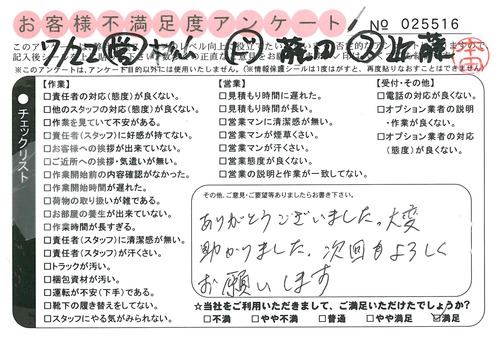 お客様不満足度アンケート
No 025516
※このアンケートは、アンケート目的以外には使用いたしません。(※情報保護シールは1度はがすと、再度貼りなおすことはできません)
チェックリスト
【作業】
□責任者の対応(態度)が良くない。
□他のスタッフの対応(態度)が良くない。
□作業を見ていて不安がある。
□責任者(スタッフ)に好感が持てない。
□お客様への挨拶が出来ていない。
□ご近所への挨拶・気遣いが無い。
□作業開始前の内容確認がなかった。
□作業開始時間が遅れた。
□荷物の取り扱いが雑である。
□お部屋の養生が出来ていない。
□作業時間が長すぎる。
□責任者(スタッフ)に清潔感が無い。
□責任者(スタッフ)が汗くさい。
□トラックが汚い。
□梱包資材が汚い。
□運転が不安(下手)である。
□靴下の履き替えをしてない。
□スタッフにやる気がみられない。
【営業】
□見積もり時間に遅れた。
□見積もり時間が長い。
□営業マンに清潔感が無い。
□営業マンが煙草くさい。
□営業マンが汗くさい。
□営業態度が良くない。
□営業の説明と作業が一致してない。
【受付・その他】
□電話の対応が良くない。
□オプション業者の説明
・作業が良くない。
□オプション業者の対応
(態度)が良くない。
その他、ご意見・ご要望等ありましたらお書き下さい。
ありがとうございました。大変
助かりました。次回もよろしく
お願いします
☆当社をご利用いただきまして、ご満足いただけたでしょうか?
□不満 □やや不満 □普通 □やや満足 ☑満足